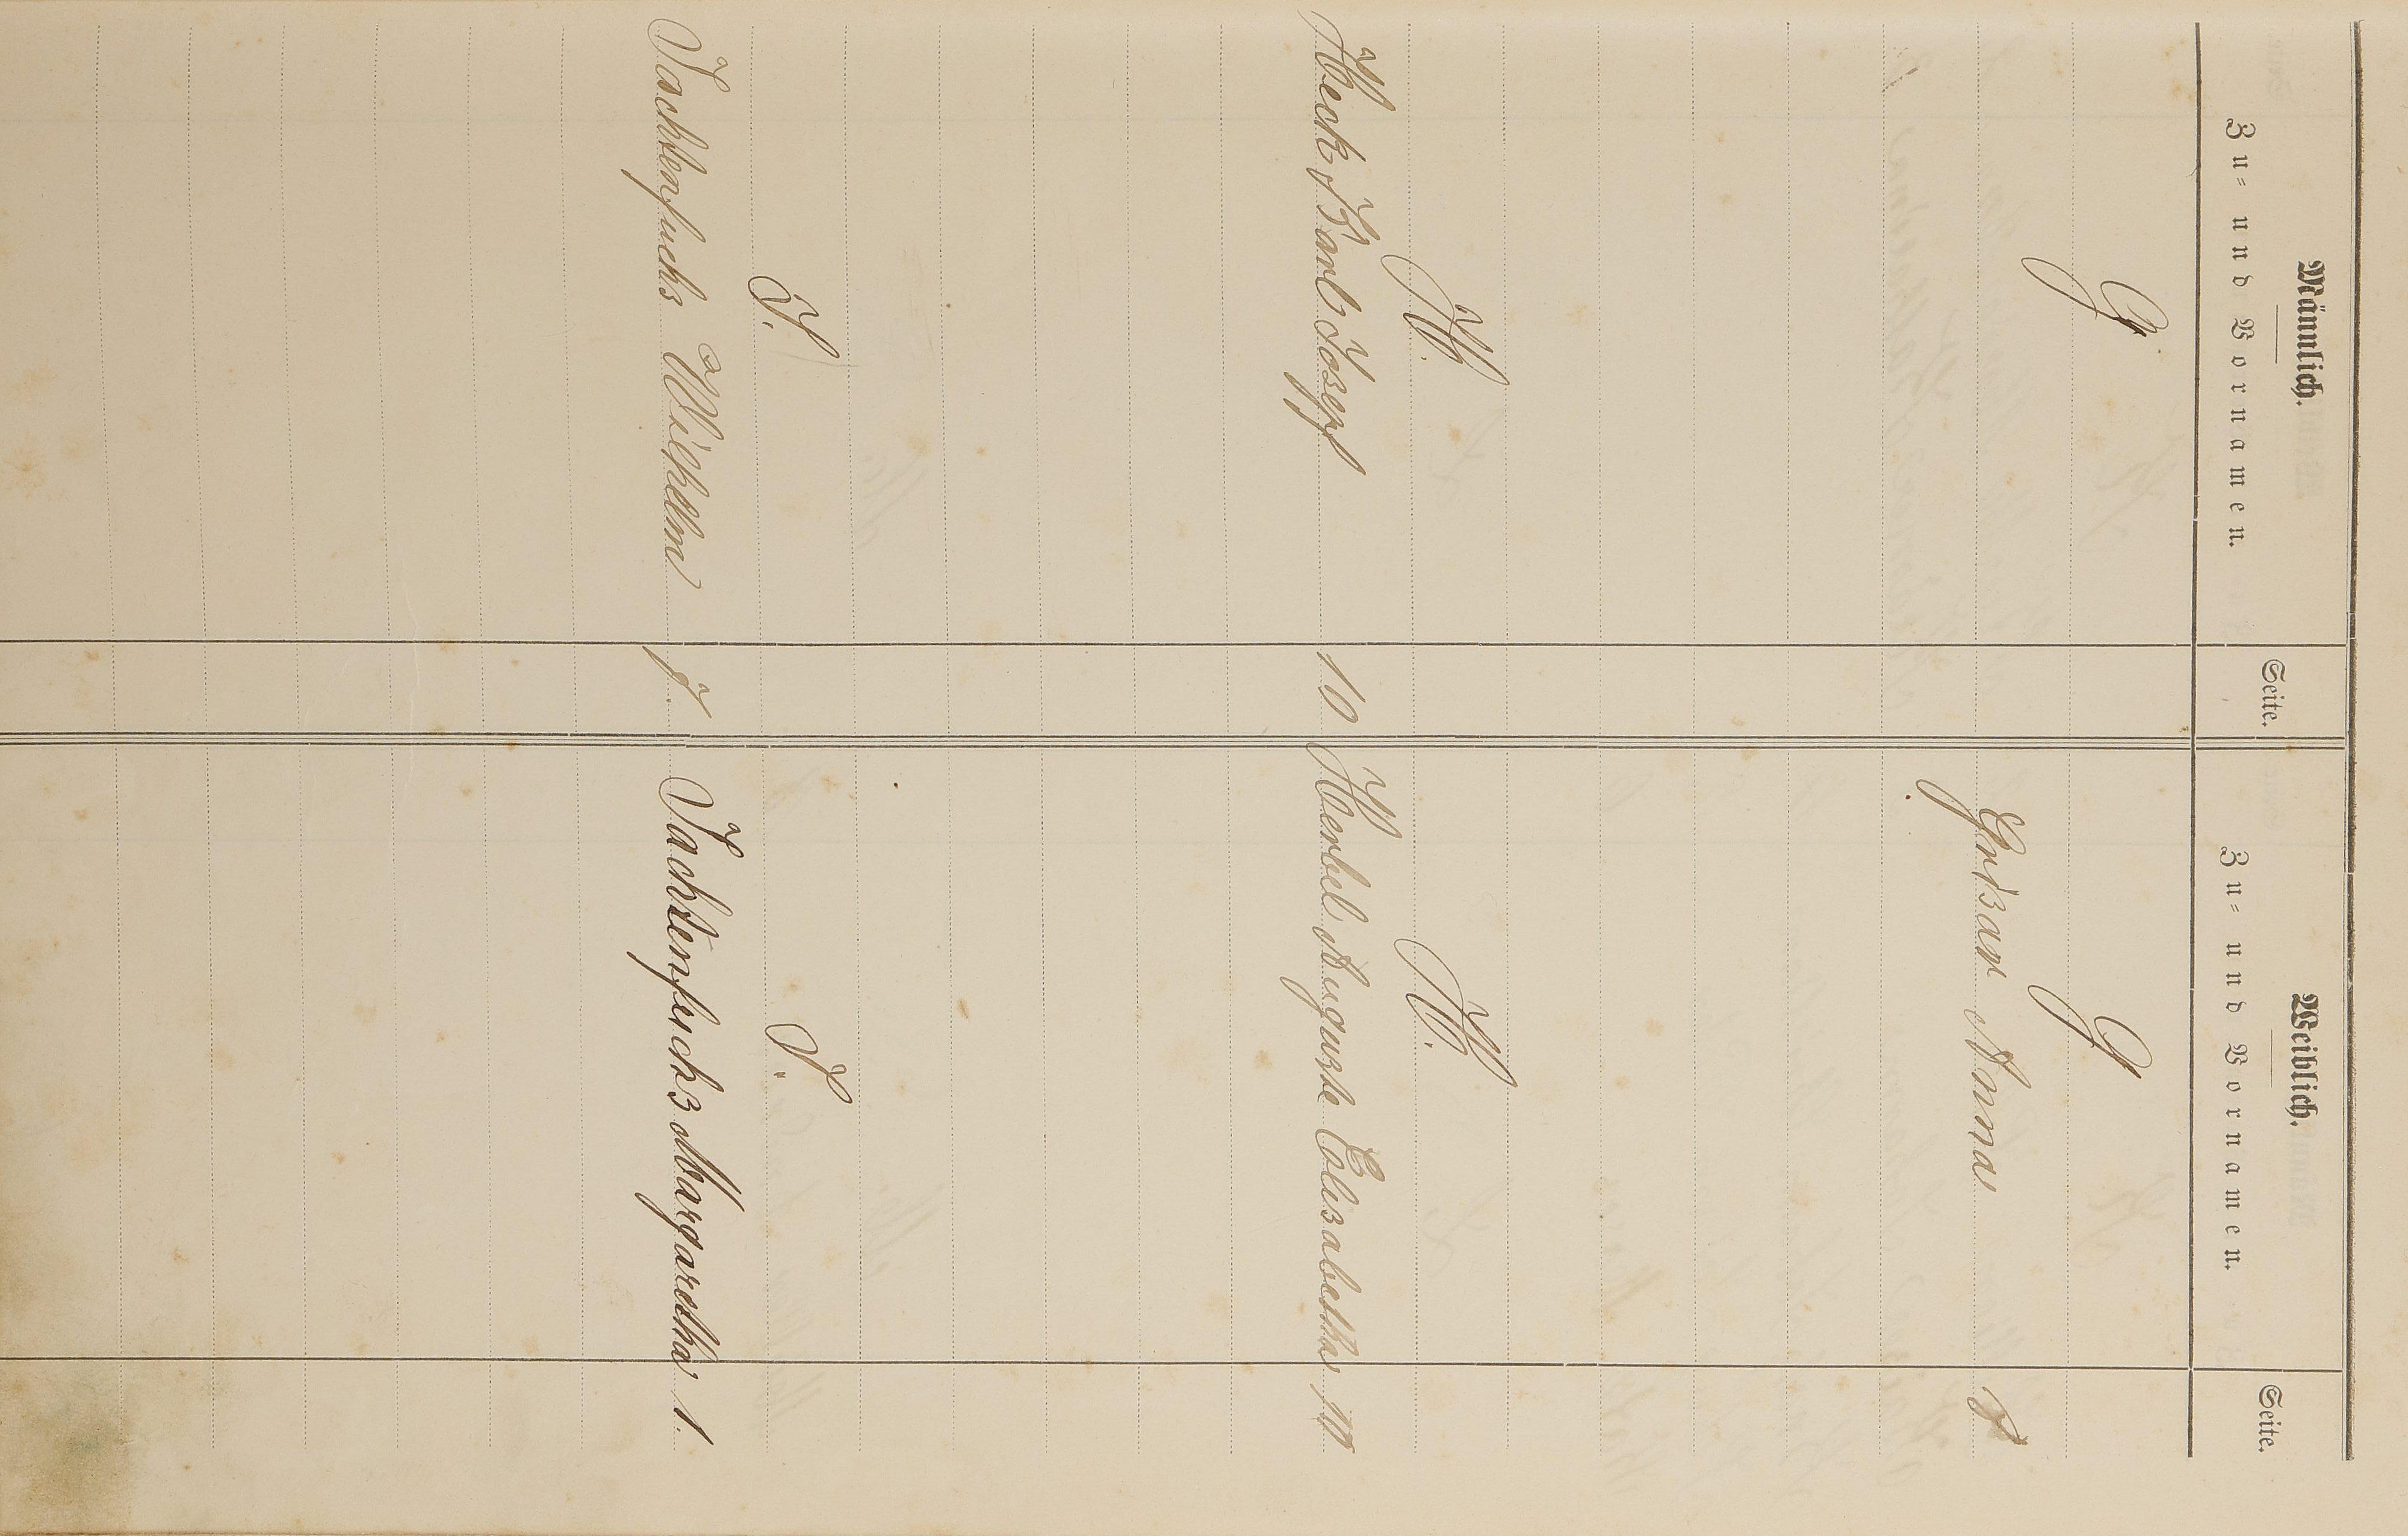 Männlich.
Zu- und Vornamen.
Seite.
Weiblich.
Zu- und Vornamen.
Seite.
G.
G
Grisar Anna
8
H.
H.
Heck, Karl Josef
10
Herbel Auguste Elisabetha
10
J.
J.
Jachtenfuchs Wilhelm
7.
Jachtenfuchs Margaretha
1.